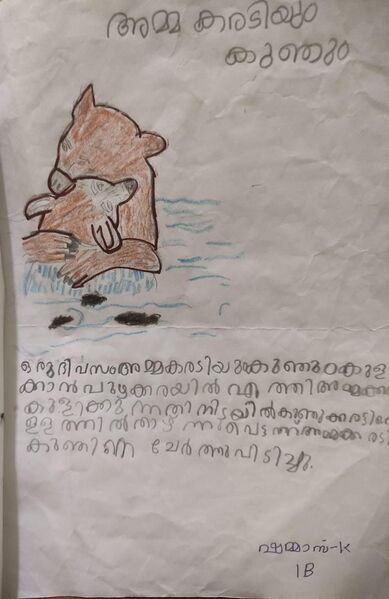 അമ്മ കരടിയും
കുഞ്ഞും
ഒരുദിവസംഅമ്മകരടിയുംകുഞ്ഞുംകുള
ക്കാൻപുഴക്കരയിൽഎത്തിഅമ്മക്ക
കുളിക്കുന്നതിനിടയിൽകുഞ്ഞുകരടിവെ
ള്ളത്തിൽതാഴ്ന്നുപെട്ടന്ന്അമ്മക്കരടി
കുഞ്ഞിനെ ചേർത്തുപിടിച്ചു.
ഷമ്മാസ്-K
1B